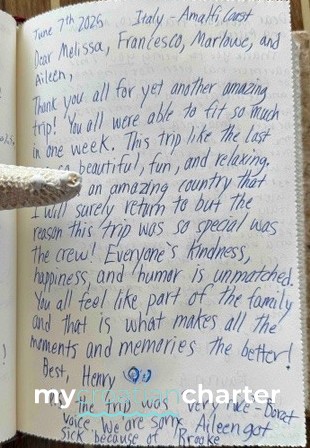 June 7th 2025 Italy - Amalfi Coast
Dear Melissa, Francesco, Marlowe, and
Aileen,
Thank you all for yet another amazing
trip! You all were able to fit so much
in one week. This trip like the last
so beautiful, fun, and relaxing.
an amazing country that
I will surely return to but the
reason this trip was so special was
the crew! Everyone's kindness,
happiness, and humor is unmatched.
You all feel like part of the family
and that is what makes all the
moments and memories the better!
Best, Henry
mycroatiancharter
the trip was very nice - Borat
voice. We are sorry Aileen got
sick because of Brooke